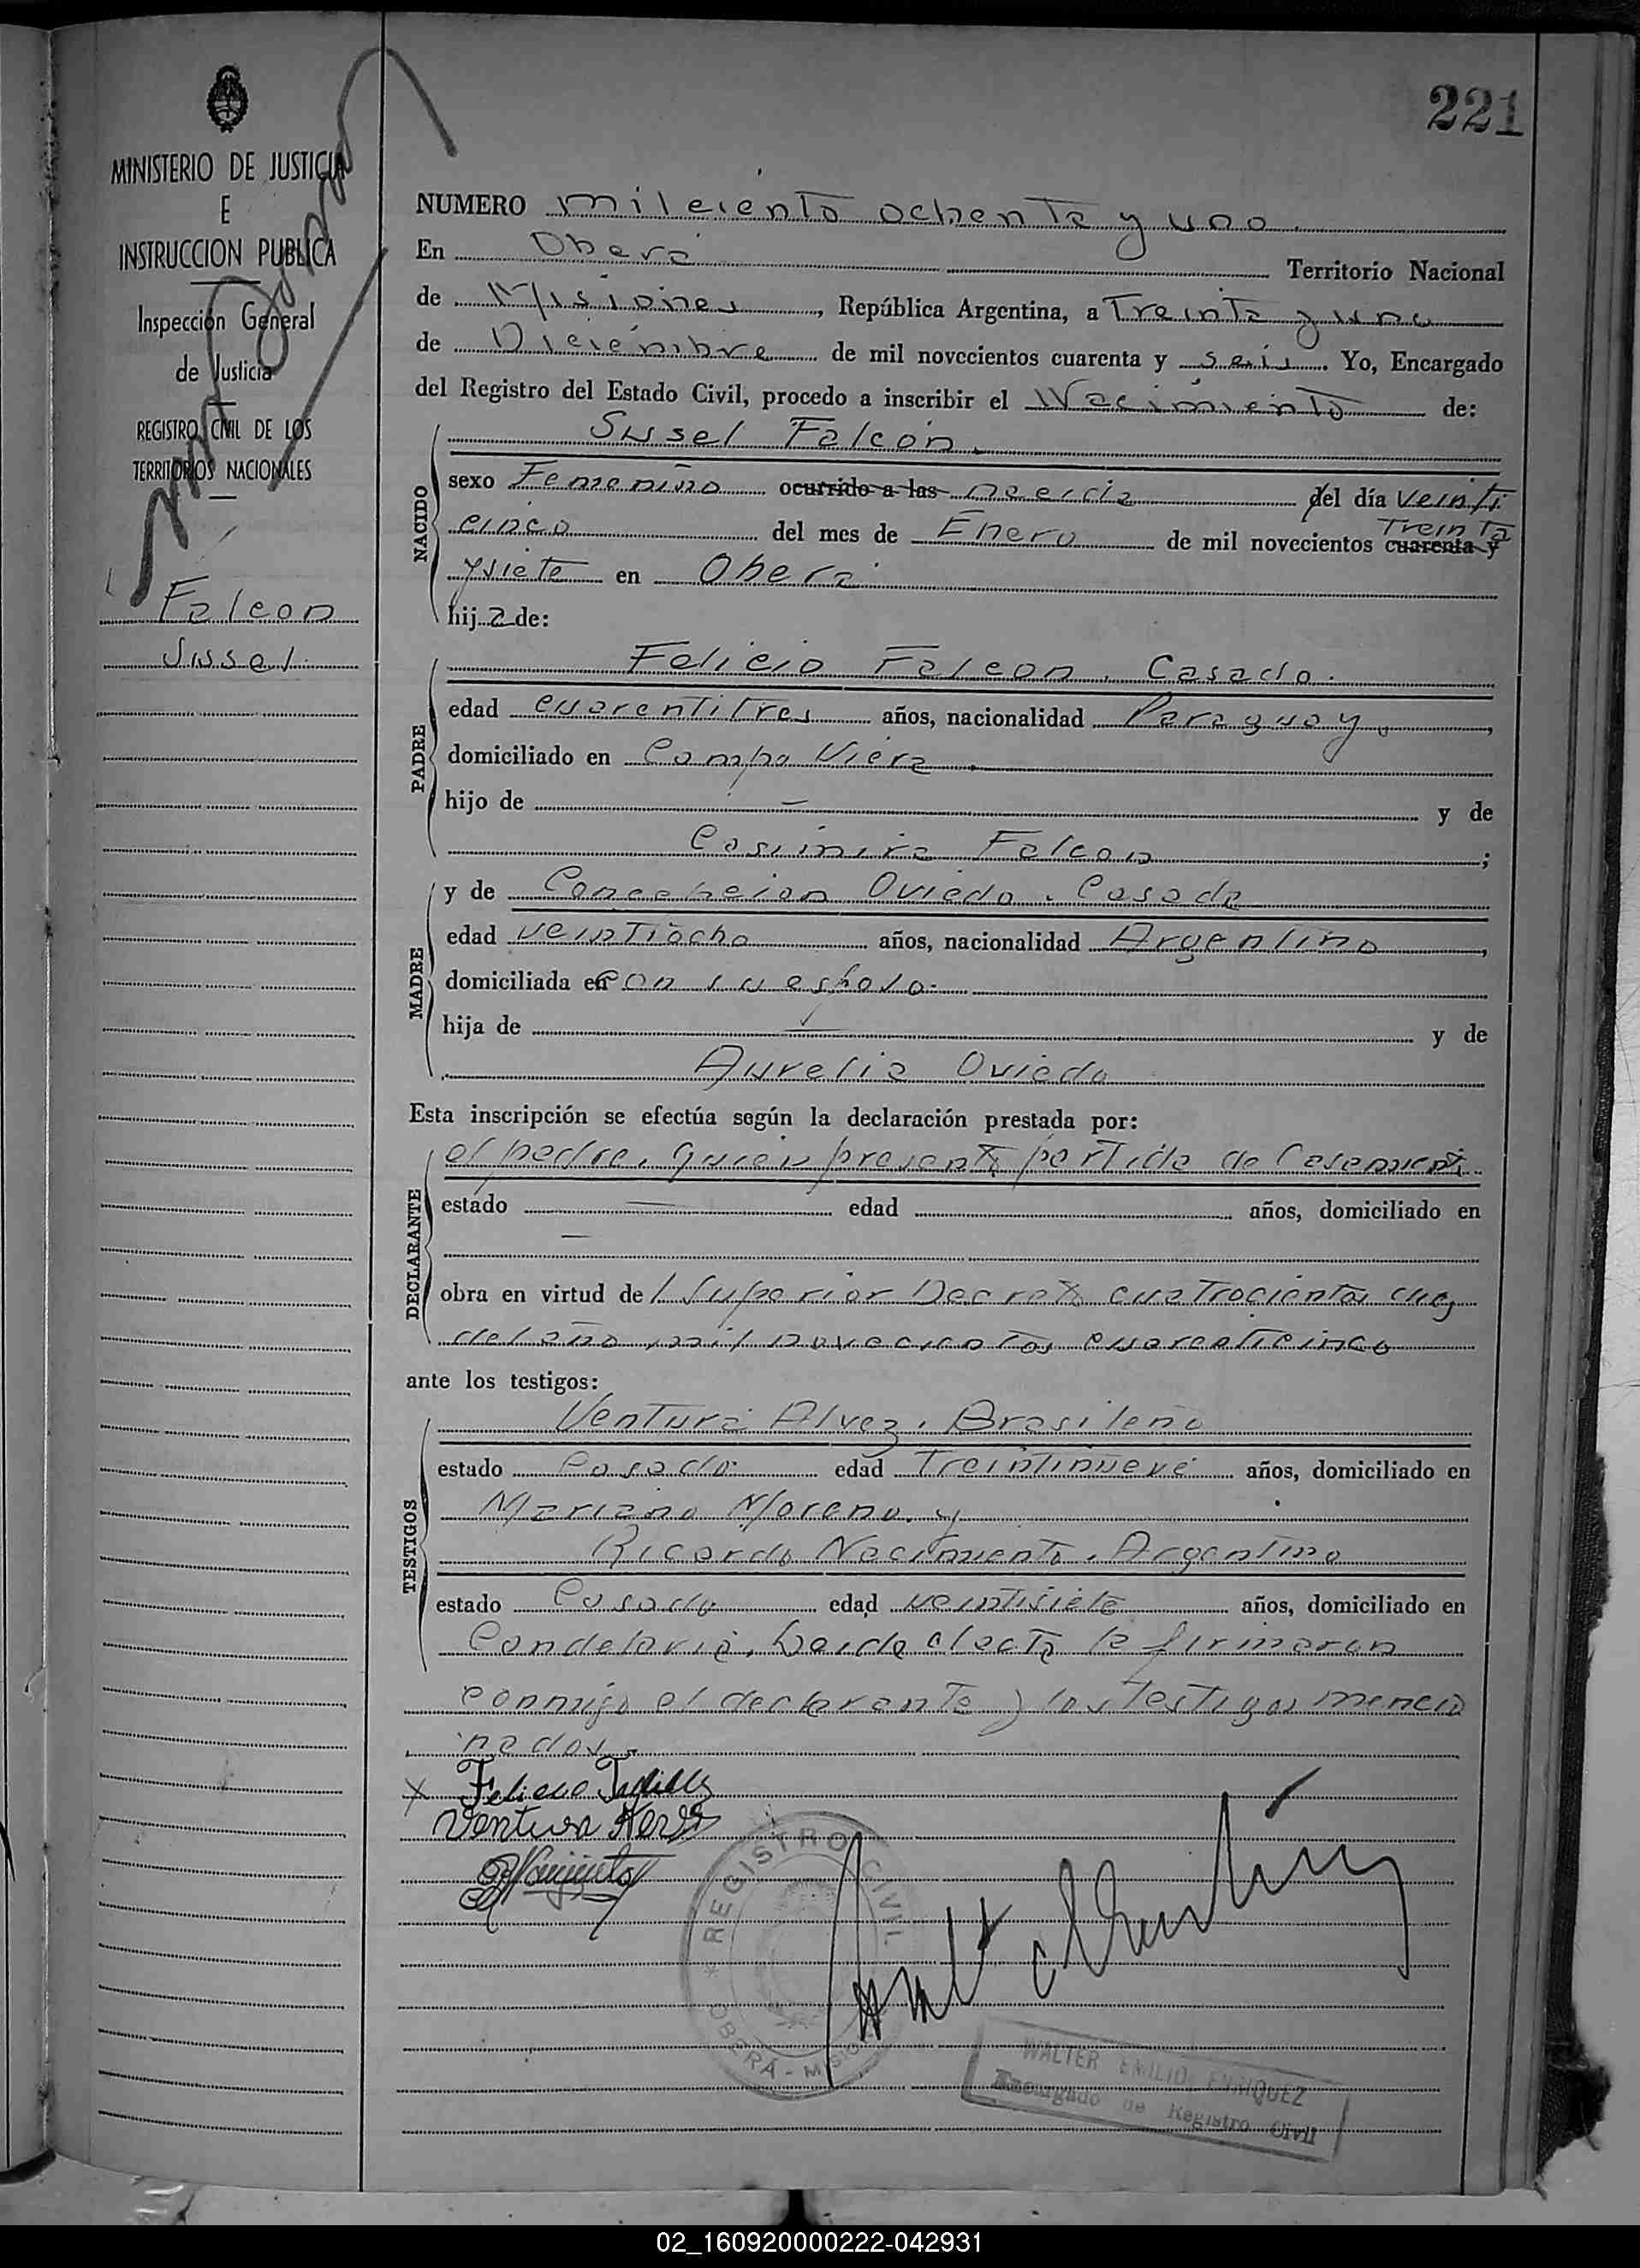 221
MINISTERIO DE JUSTICIA
E
INSTRUCCION PUBLICA
Inspección General
de Justicia
REGISTRO CIVIL DE LOS
TERRITORIOS NACIONALES
Falcon
Sussel.
NUMERO mil ciento ochenta y uno.
En Oberá Territorio Nacional
de Misiones, República Argentina, a Treinta y uno
de Diciembre de mil novecientos cuarenta y seis. Yo, Encargado
del Registro del Estado Civil, procedo a inscribir el Nacimiento de:
NACIDO
Sussel Falcón.
sexo Femenino ocurrido a las nacida del día veinti
cinco del mes de Enero de mil novecientos cuarenta y Treinta
y siete en Oberá
hija de:
PADRE
Felicio Falcon. Casado.
edad cuarentitres años, nacionalidad Paraguay.
domiciliado en Campo Viera.
hijo de — y de
Casimira Falcon;
MADRE
y de Concepcion Oviedo. Casada
edad veintiocho años, nacionalidad Argentina,
domiciliada en con su esposo.
hija de — y de
Aurelia Oviedo
Esta inscripción se efectúa según la declaración prestada por:
DECLARANTE
el padre, quien presenta partida de Casamient.
estado — edad años, domiciliado en
—
obra en virtud del Superior Decreto cuatrocientos diez
del año mil novecientos cuarenticinco
ante los testigos:
TESTIGOS
Ventura Alvez. Brasileño
estado Casado. edad Treintinueve años, domiciliado en
Mariano Moreno. y
Ricardo Nacimiento. Argentino
estado Casado edad veintisiete años, domiciliado en
Candelaria. Leida el acta la firmaron
conmigo el declarante y los Testigos mencio
nados.
x Felicio
Ventura
REGISTRO CIVIL
* OBERÁ - MISIONES
WALTER EMILIO ENRIQUEZ
Encargado de Registro Civil
02_160920000222-042931